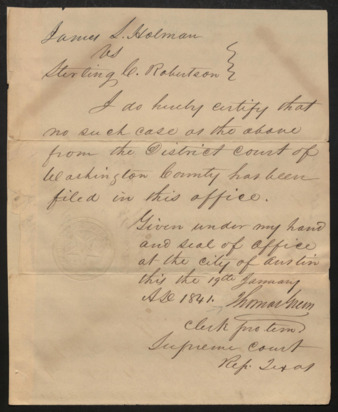 James S. Holman
vs
Sterling C. Robertson
I do hereby certify that
no such case as the above
from the District court of
Washington County has been
filed in this office.
Given under my hand
and seal of office
at the city of Austin
this the 19th January
AD 1841. Thomas Green
Clerk protem
Supreme Court
Rep. Texas